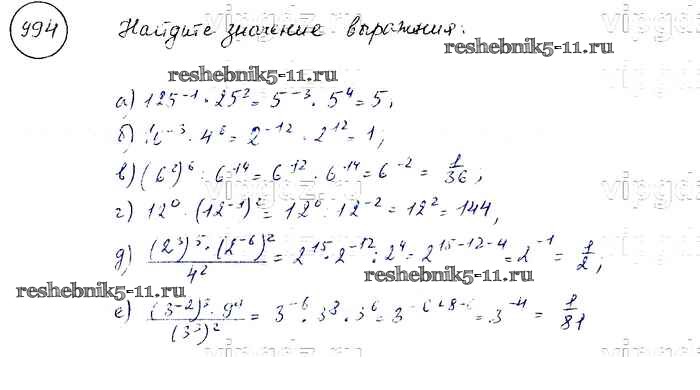 994 Найдите значение выражения:
reshebnik5-11.ru
а) 125⁻¹ · 25² = 5⁻³ · 5⁴ = 5;
б) ⁻³ · 4⁶ = 2⁻¹² · 2¹² = 1;
в) (6²)⁶ : 6¹⁴ = 6¹² · 6⁻¹⁴ = 6⁻² = 1/36;
г) 12⁰ : (12⁻¹)² = 12⁰ : 12⁻² = 12² = 144,
д) (2³)⁵ · (2⁻⁶)² / 4² = 2¹⁵ · 2⁻¹² : 2⁴ = 2¹⁵⁻¹²⁻⁴ = 2⁻¹ = 1/2;
reshebnik5-11.ru reshebnik5-11.ru
е) (3⁻²)³ · 9⁴ / (3³)² = 3⁻⁶ · 3⁸ : 3⁶ = 3⁻⁶⁺⁸⁻⁶ = 3⁻⁴ = 1/81
reshebnik5-11.ru